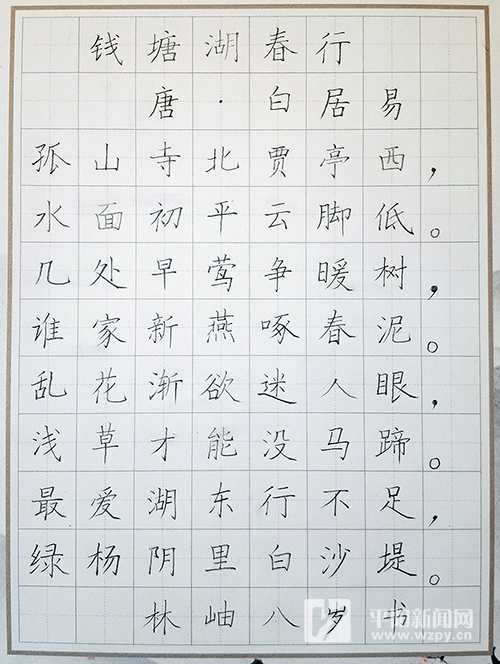 钱塘湖春行
唐·白居易
孤山寺北贾亭西，
水面初平云脚低。
几处早莺争暖树，
谁家新燕啄春泥。
乱花渐欲迷人眼，
浅草才能没马蹄。
最爱湖东行不足，
绿杨阴里白沙堤。
林岫八岁书
新闻网
www.wzpy.cn